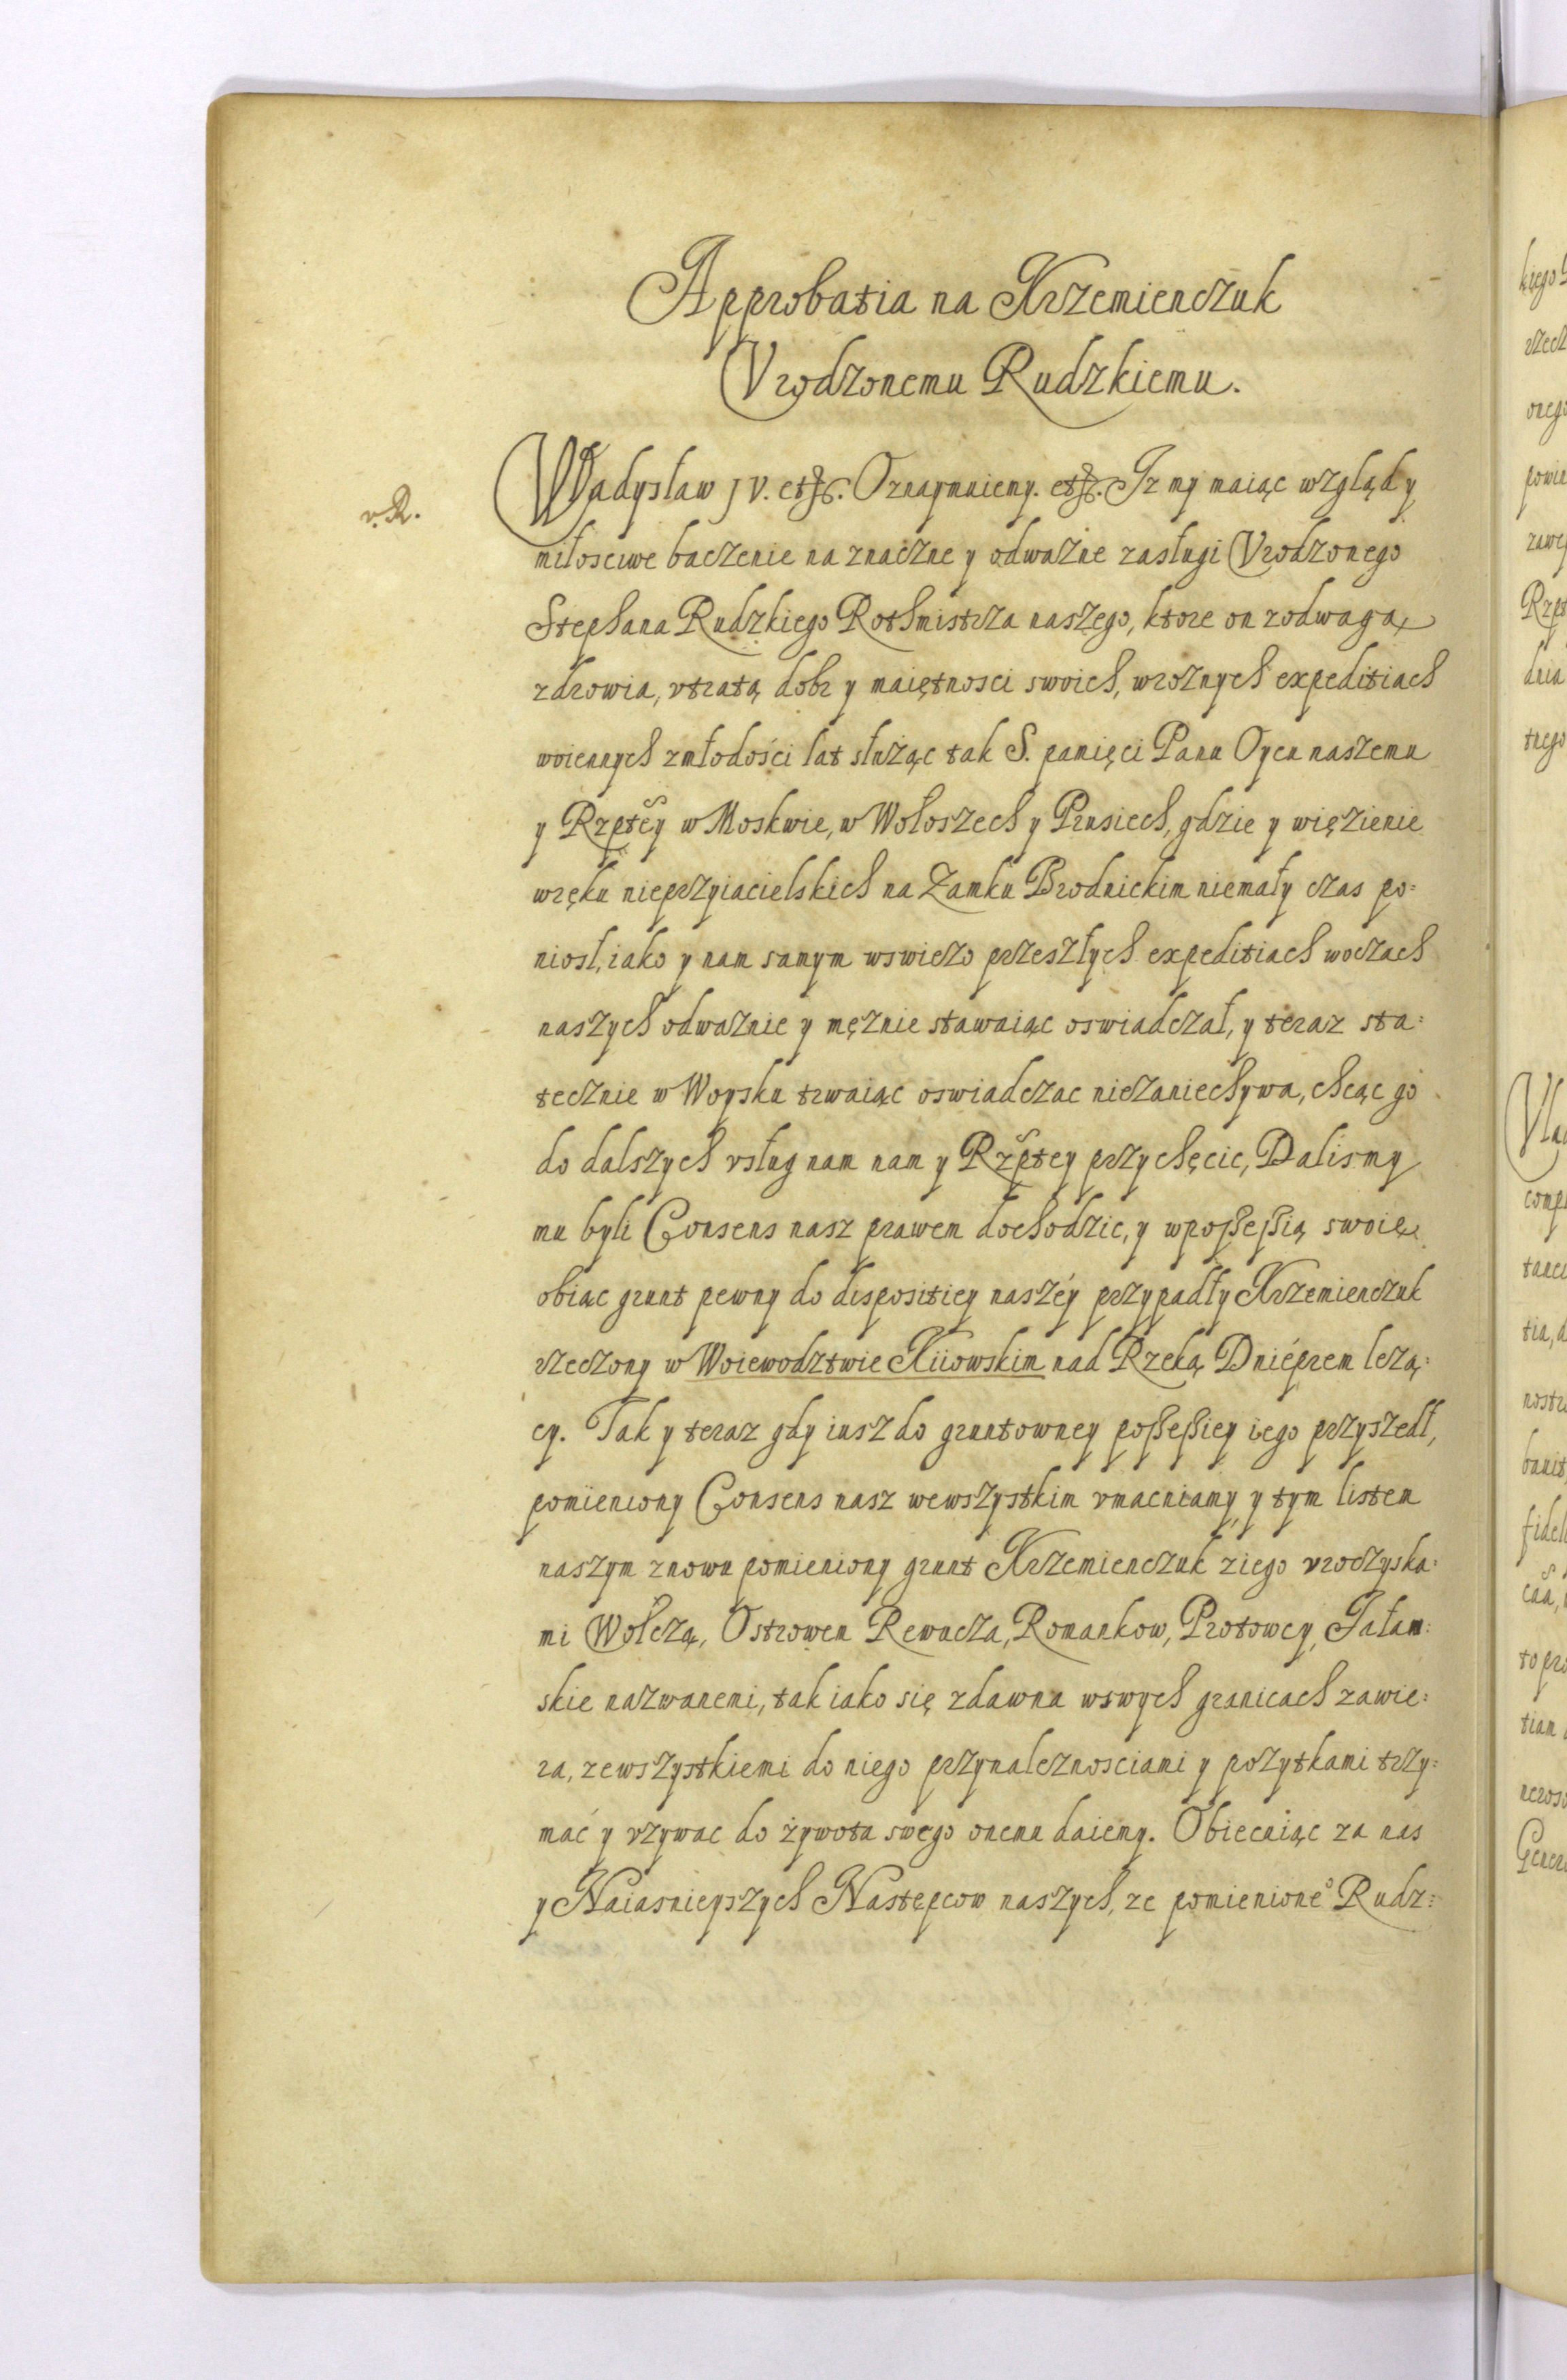 Approbatia na Krzemienczuk
Vrodzonemu Rudzkiemu.
v. R.
Władysław IV. etc. Oznaymuiemy. etc. Iz my maiąc wzgląd y
miłosciwe baczenie na znaczne y odważne zasługi Vrodzonego
Stephana Rudzkiego Rothmistrza naszego, ktore on zodwagą
zdrowia, vtratą dobr y maiętnosci swoich, wroznych expeditiach
woiennych zmłodości lat służąc tak S. pamięci Panu Oycu naszemu
y Rzptey w Moskwie, w Wołoszech y Prusiech, gdzie y więzienie
wręku nieprzyiacielskich na Zamku Brodnickim niemały czas po=
niosł, iako y nam samym wswiezo przeszłych expeditiach woczach
naszych odwaznie y męznie stawaiąc oswiadczał, y teraz sta=
tecznie w Woysku trwaiąc oswiadczac niezaniechywa, chcąc go
do dalszych vsług nam nam y Rzptey przychęcic, Dalismy
mu byli Consens nasz prawem dochodzic, y wpossessią swoię
obiąc grunt pewny do dispositiey naszéy przypadły Krzemienczuk
rzeczony w Woiewodztwie Kiiowskim nad Rzeką Dnieprem lezą=
cy. Tak y teraz gdy iusz do gruntowney possessiey iego przyszedł,
pomieniony Consens nasz wewszystkim vmacniamy, y tym listem
naszym znowu pomieniony grunt Krzemienczuk ziego vroczyska=
mi Wolczą, Ostrowem Rewucza, Romankow, Protowcy, Tałam=
skie nazwanemi, tak iako się zdawna wswych granicach zawie=
ra, zewszystkiemi do niego przynaleznosciami y pozytkami trzy=
mać y vzywac do żywota swego onemu daiemy. Obiecuiąc za nas
y Naiasnieyszych Następcow naszych, ze pomienione° Rudz=